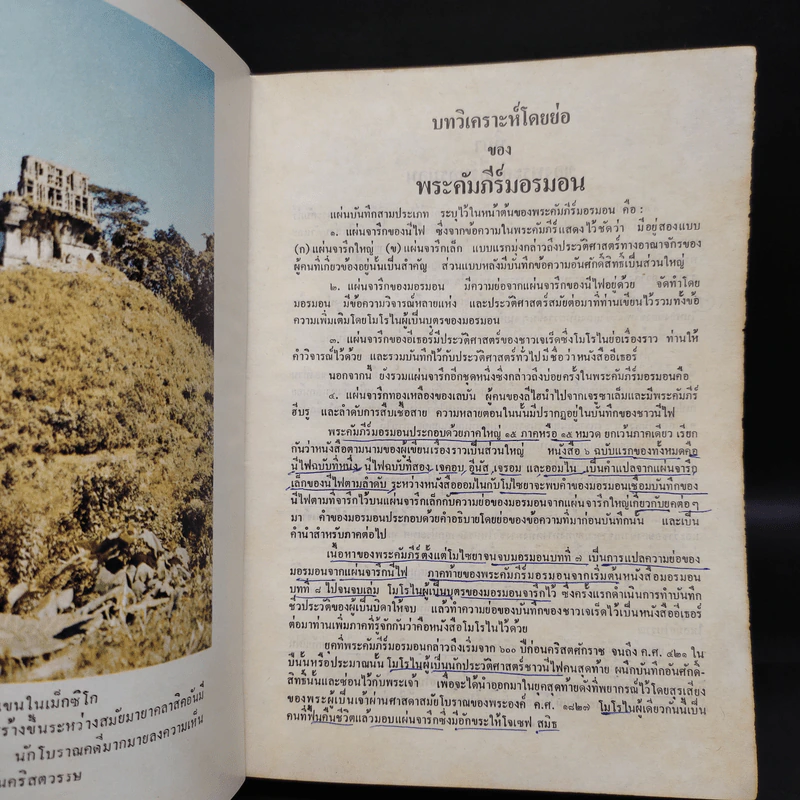 เขนในเม็กซิโก
ร้างขึ้นระหว่างสมัยมายาคลาสิคอันมี
นักโบราณคดีมากมายลงความเห็น
นคริสตวรรษ
บทวิเคราะห์โดยย่อ
ของ
พระคัมภีร์มอรมอน
แผ่นบันทึกสามประเภท ระบุไว้ในหน้าต้นของพระคัมภีร์มอรมอน คือ :
๑. แผ่นจารึกของนีไฟ ซึ่งจากข้อความในพระคัมภีร์แสดงไว้ชัดว่า มีอยู่สองแบบ
(ก) แผ่นจารึกใหญ่ (ข) แผ่นจารึกเล็ก แบบแรกมุ่งกล่าวถึงประวัติศาสตร์ทางอาณาจักรของ
ผู้คนที่เกี่ยวข้องอยู่นั้นเป็นสำคัญ ส่วนแบบหลังมีบันทึกข้อความอันศักดิ์สิทธิ์เป็นส่วนใหญ่
๒. แผ่นจารึกของมอรมอน มีความย่อจากแผ่นจารึกของนีไฟอยู่ด้วย จัดทำโดย
มอรมอน มีข้อความวิจารณ์หลายแห่ง และประวัติศาสตร์สมัยต่อมาที่ท่านเขียนไว้รวมทั้งข้อ
ความเพิ่มเติมโดยโมโรไนผู้เป็นบุตรของมอรมอน
๓. แผ่นจารึกของอีเธอร์มีประวัติศาสตร์ของชาวเจเร็ดซึ่งโมโรไนย่อเรื่องราว ท่านให้
คำวิจารณ์ไว้ด้วย และรวมบันทึกไว้กับประวัติศาสตร์ทั่วไปมีชื่อว่าหนังสืออีเธอร์
นอกจากนี้ ยังรวมแผ่นจารึกอีกชุดหนึ่งซึ่งกล่าวถึงบ่อยครั้งในพระคัมภีร์มอรมอนคือ
๔. แผ่นจารึกทองเหลืองของเลบัน ผู้คนของลีไฮนำไปจากเจรูซาเล็มและมีพระคัมภีร์
ฮีบรู และลำดับการสืบเชื้อสาย ความหลายตอนในนั้นมีปรากฏอยู่ในบันทึกของชาวนีไฟ
พระคัมภีร์มอรมอนประกอบด้วยภาคใหญ่ ๑๕ ภาคหรือ ๑๕ หมวด ยกเว้นภาคเดียว เรียก
กันว่าหนังสือตามนามของผู้เขียนเรื่องราวเป็นส่วนใหญ่ หนังสือ ๖ ฉบับแรกของทั้งหมดคือ
นีไฟฉบับที่หนึ่ง นีไฟฉบับที่สอง เจคอบ อีนัส เจรอม และออมไน เป็นคำแปลจากแผ่นจารึก
เล็กของนีไฟตามลำดับ ระหว่างหนังสือออมไนกับโมไซยาจะพบคำของมอรมอนเชื่อมบันทึกของ
นีไฟตามที่จารึกไว้บนแผ่นจารึกเล็กกับความย่อของมอรมอนจากแผ่นจารึกใหญ่เกี่ยวกับยุคต่อๆ
มา คำของมอรมอนประกอบด้วยคำอธิบายโดยย่อของข้อความที่มาก่อนบันทึกนั้น และเป็น
คำนำสำหรับภาคต่อไป
เนื้อหาของพระคัมภีร์ตั้งแต่โมไซยาจนจบมอรมอนบทที่ ๗ เป็นการแปลความย่อของ
มอรมอนจากแผ่นจารึกนีไฟ ภาคท้ายของพระคัมภีร์มอรมอนจากเริ่มต้นหนังสือมอรมอน
บทที่ ๘ ไปจนจบเล่ม โมโรไนผู้เป็นบุตรของมอรมอนจารึกไว้ ซึ่งครั้งแรกดำเนินการทำบันทึก
ชีวประวัติของผู้เป็นบิดาให้จบ แล้วทำความย่อของบันทึกของชาวเจเร็ดไว้เป็นหนังสืออีเธอร์
ต่อมาท่านเพิ่มภาคที่รู้จักกันว่าคือหนังสือโมโรไนไว้ด้วย
ยุคที่พระคัมภีร์มอรมอนกล่าวถึงเริ่มจาก ๖๐๐ ปีก่อนคริสตศักราช จนถึง ค.ศ. ๔๒๑ ใน
ปีนั้นหรือประมาณนั้น โมโรไนผู้เป็นนักประวัติศาสตร์ชาวนีไฟคนสุดท้าย ผนึกบันทึกอันศักดิ์-
สิทธิ์นั้นและซ่อนไว้กับพระเจ้า เพื่อจะได้นำออกมาในยุคสุดท้ายดังที่พยากรณ์ไว้โดยสุรเสียง
ของพระผู้เป็นเจ้าผ่านศาสดาสมัยโบราณของพระองค์ ค.ศ. ๑๘๒๗ โมโรไนผู้เดียวกันนี้เป็น
คนที่ฟื้นคืนชีวิตแล้วมอบแผ่นจารึกซึ่งมีอักขระให้โจเซฟ สมิธ